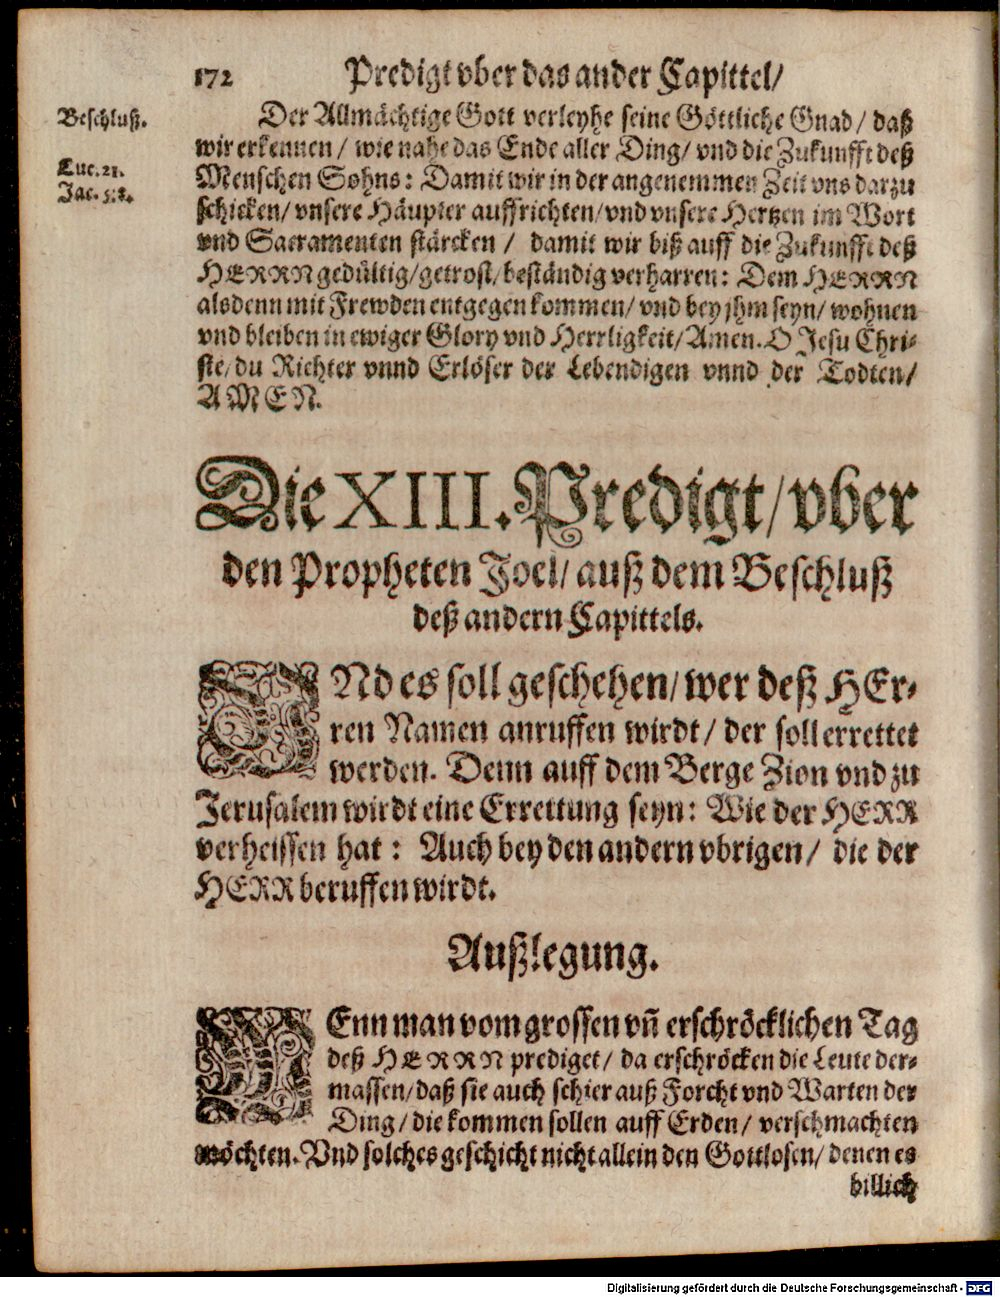 172 Predigt vber das ander Capittel/
Beschluß.
Luc. 21.
Jac. 5: 8.
Der Allmächtige Gott verleyhe seine Göttliche Gnad/ daß
wir erkennen/ wie nahe das Ende aller Ding/ vnd die Zukunfft deß
Menschen Sohns: Damit wir in der angenemmen Zeit vns darzu
schicken/ vnsere Häupter auffrichten/ vnd vnsere Hertzen im Wort
vnd Sacramenten stärcken/ damit wir biß auff die Zukunfft deß
HERRN gedültig/ getrost/ beständig verharren: Dem HERRN
alsdenn mit Frewden entgegen kommen/ vnd bey jhm seyn/ wohnen
vnd bleiben in ewiger Glory vnd Herrligkeit/ Amen. O Jesu Chri-
ste/ du Richter vnnd Erlöser der Lebendigen vnnd der Todten/
AMEN.
Die XIII. Predigt/ vber
den Propheten Joel/ auß dem Beschluß
deß andern Capittels.
VNd es soll geschehen/ wer deß HEr-
ren Namen anruffen wirdt/ der soll errettet
werden. Denn auff dem Berge Zion vnd zu
Jerusalem wirdt eine Errettung seyn: Wie der HERR
verheissen hat: Auch bey den andern vbrigen/ die der
HERR beruffen wirdt.
Außlegung.
WEnn man vom grossen vñ erschröcklichen Tag
deß HERRN prediget/ da erschröcken die Leute der-
massen/ daß sie auch schier auß Forcht vnd Warten der
Ding/ die kommen sollen auff Erden/ verschmachten
möchten. Vnd solches geschicht nicht allein den Gottlosen/ denen es
billich
Digitalisierung gefördert durch die Deutsche Forschungsgemeinschaft - DFG